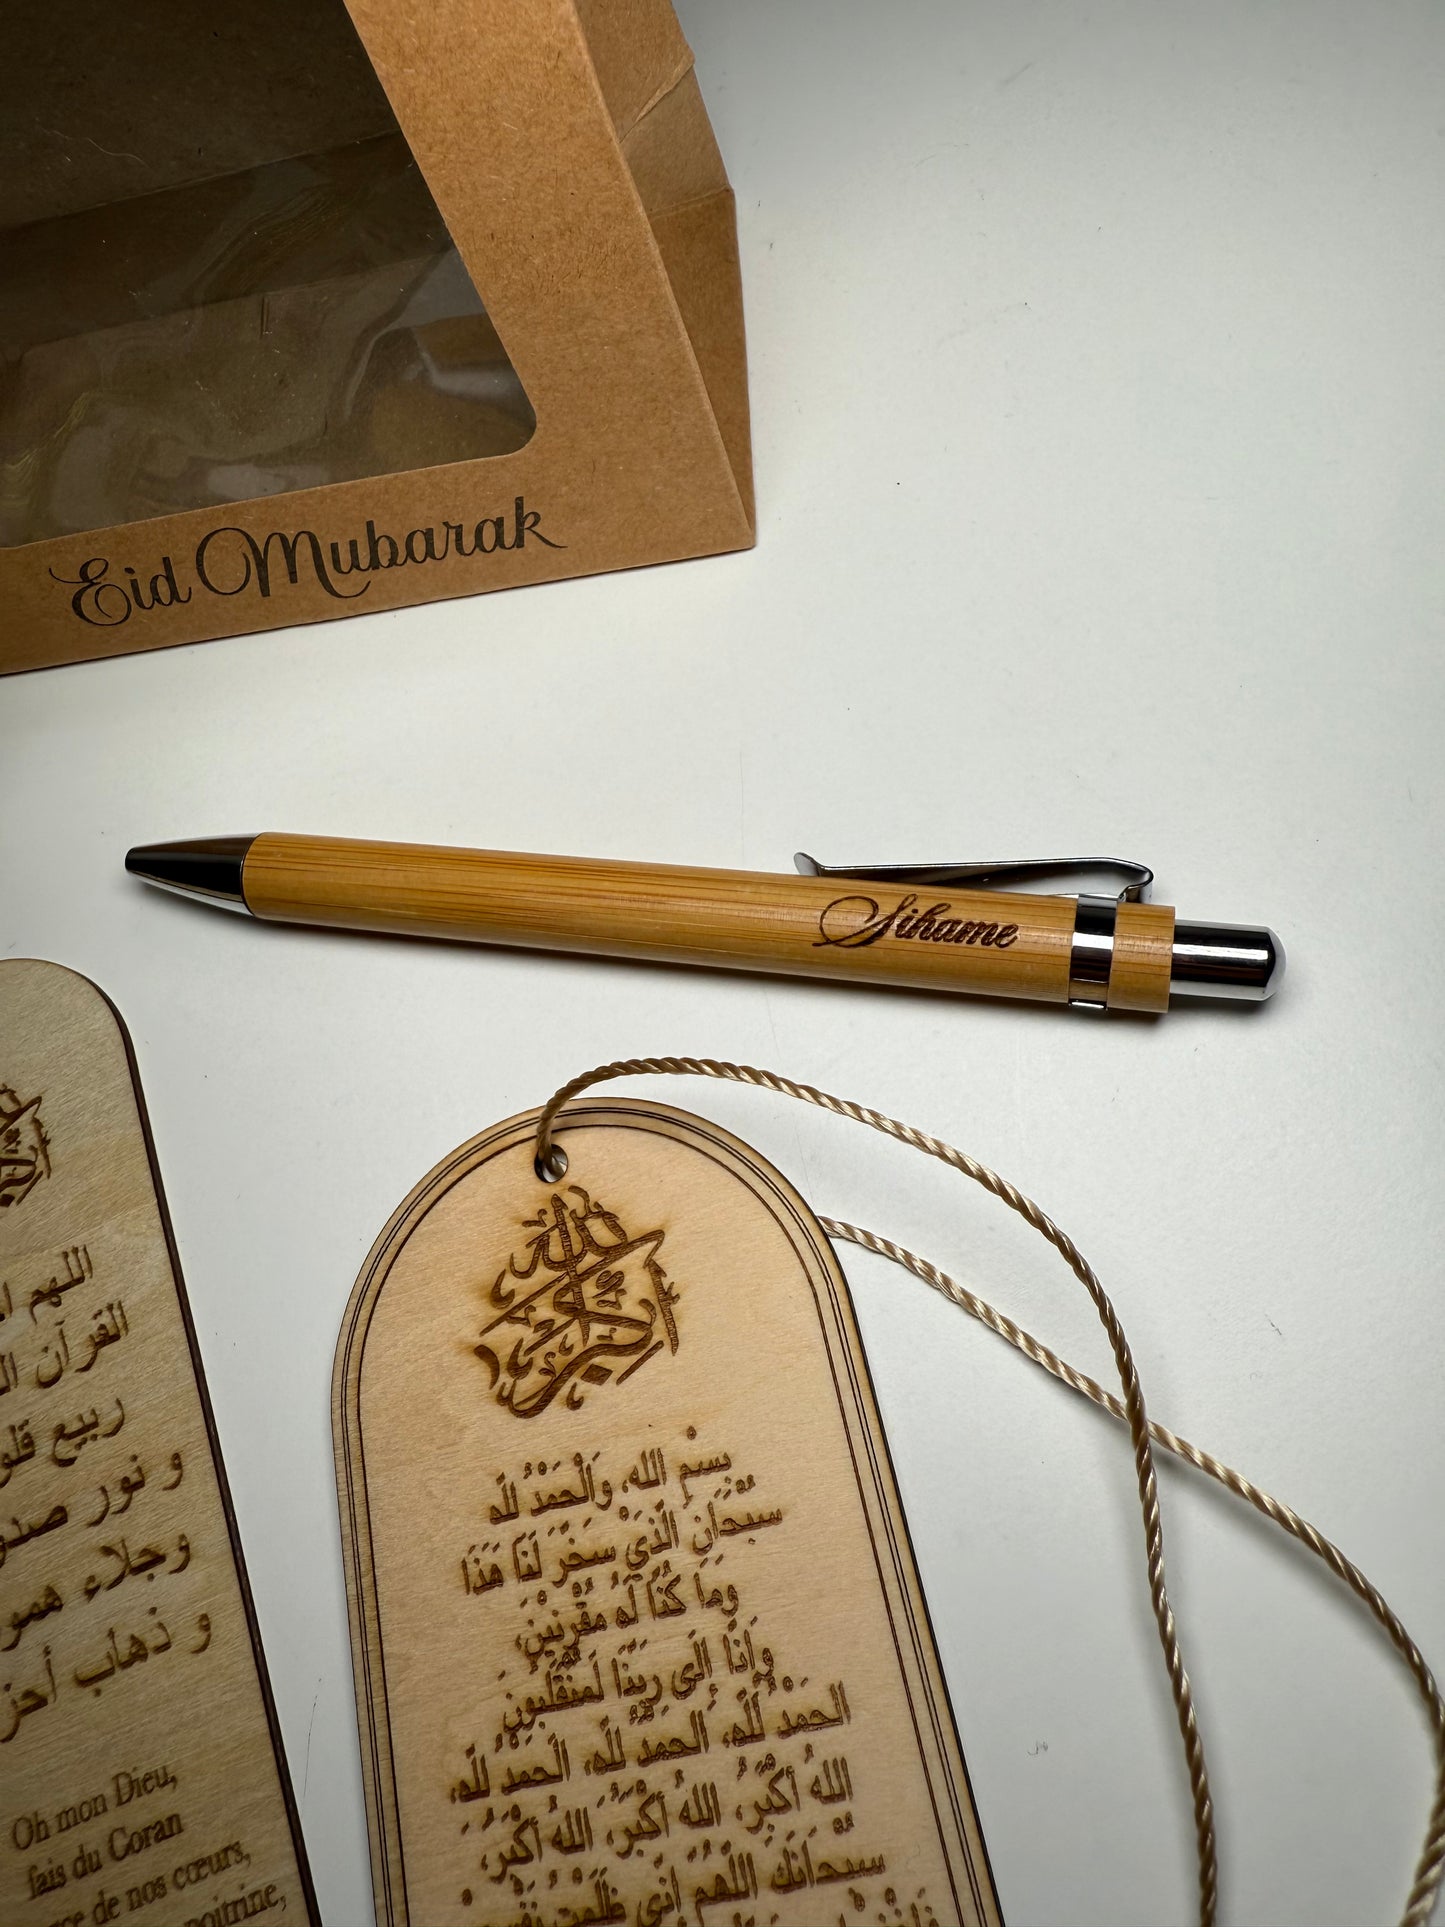 Eid Mubarak
Sihame
اللهم
القرآن
ربيع
و نور
وجلاء
و ذهاب
Oh mon Dieu,
fais du Coran
de nos cœurs,
poitrine,
الله أكبر
بِسْمِ الله، وَالْحَمْدُ للّه
سُبْحَانَ الَّذِيْ سَخَّرَ لَنَا هَذَا
وَمَا كُنَّا لَهُ مُقْرِنِيْنَ،
وَإِنَّا إِلَى رَبِّنَا لَمُنْقَلِبُونَ
الحَمْدُ للّهِ، الحَمْدُ للّهِ، الحَمْدُ للّهِ،
اللهُ أكْبَرُ، اللهُ أكْبَرُ، اللهُ أكْبَرُ،
سُبْحَانَكَ اللّهُمَّ إِنِّي ظَلَمْتُ